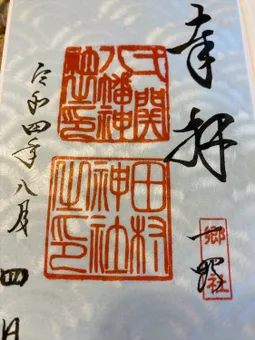 奉拝
郷社
弌関
八幡神
社之印
田村
神社
之印
令和四年八月四日